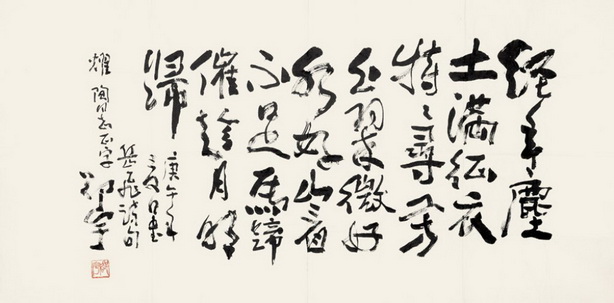 經年塵
土滿征衣
特々尋芳
上翠微好
水好山看
不足馬蹄
催趁月明
歸
庚午年
日書
岳飛詩句
耀陶同志正字